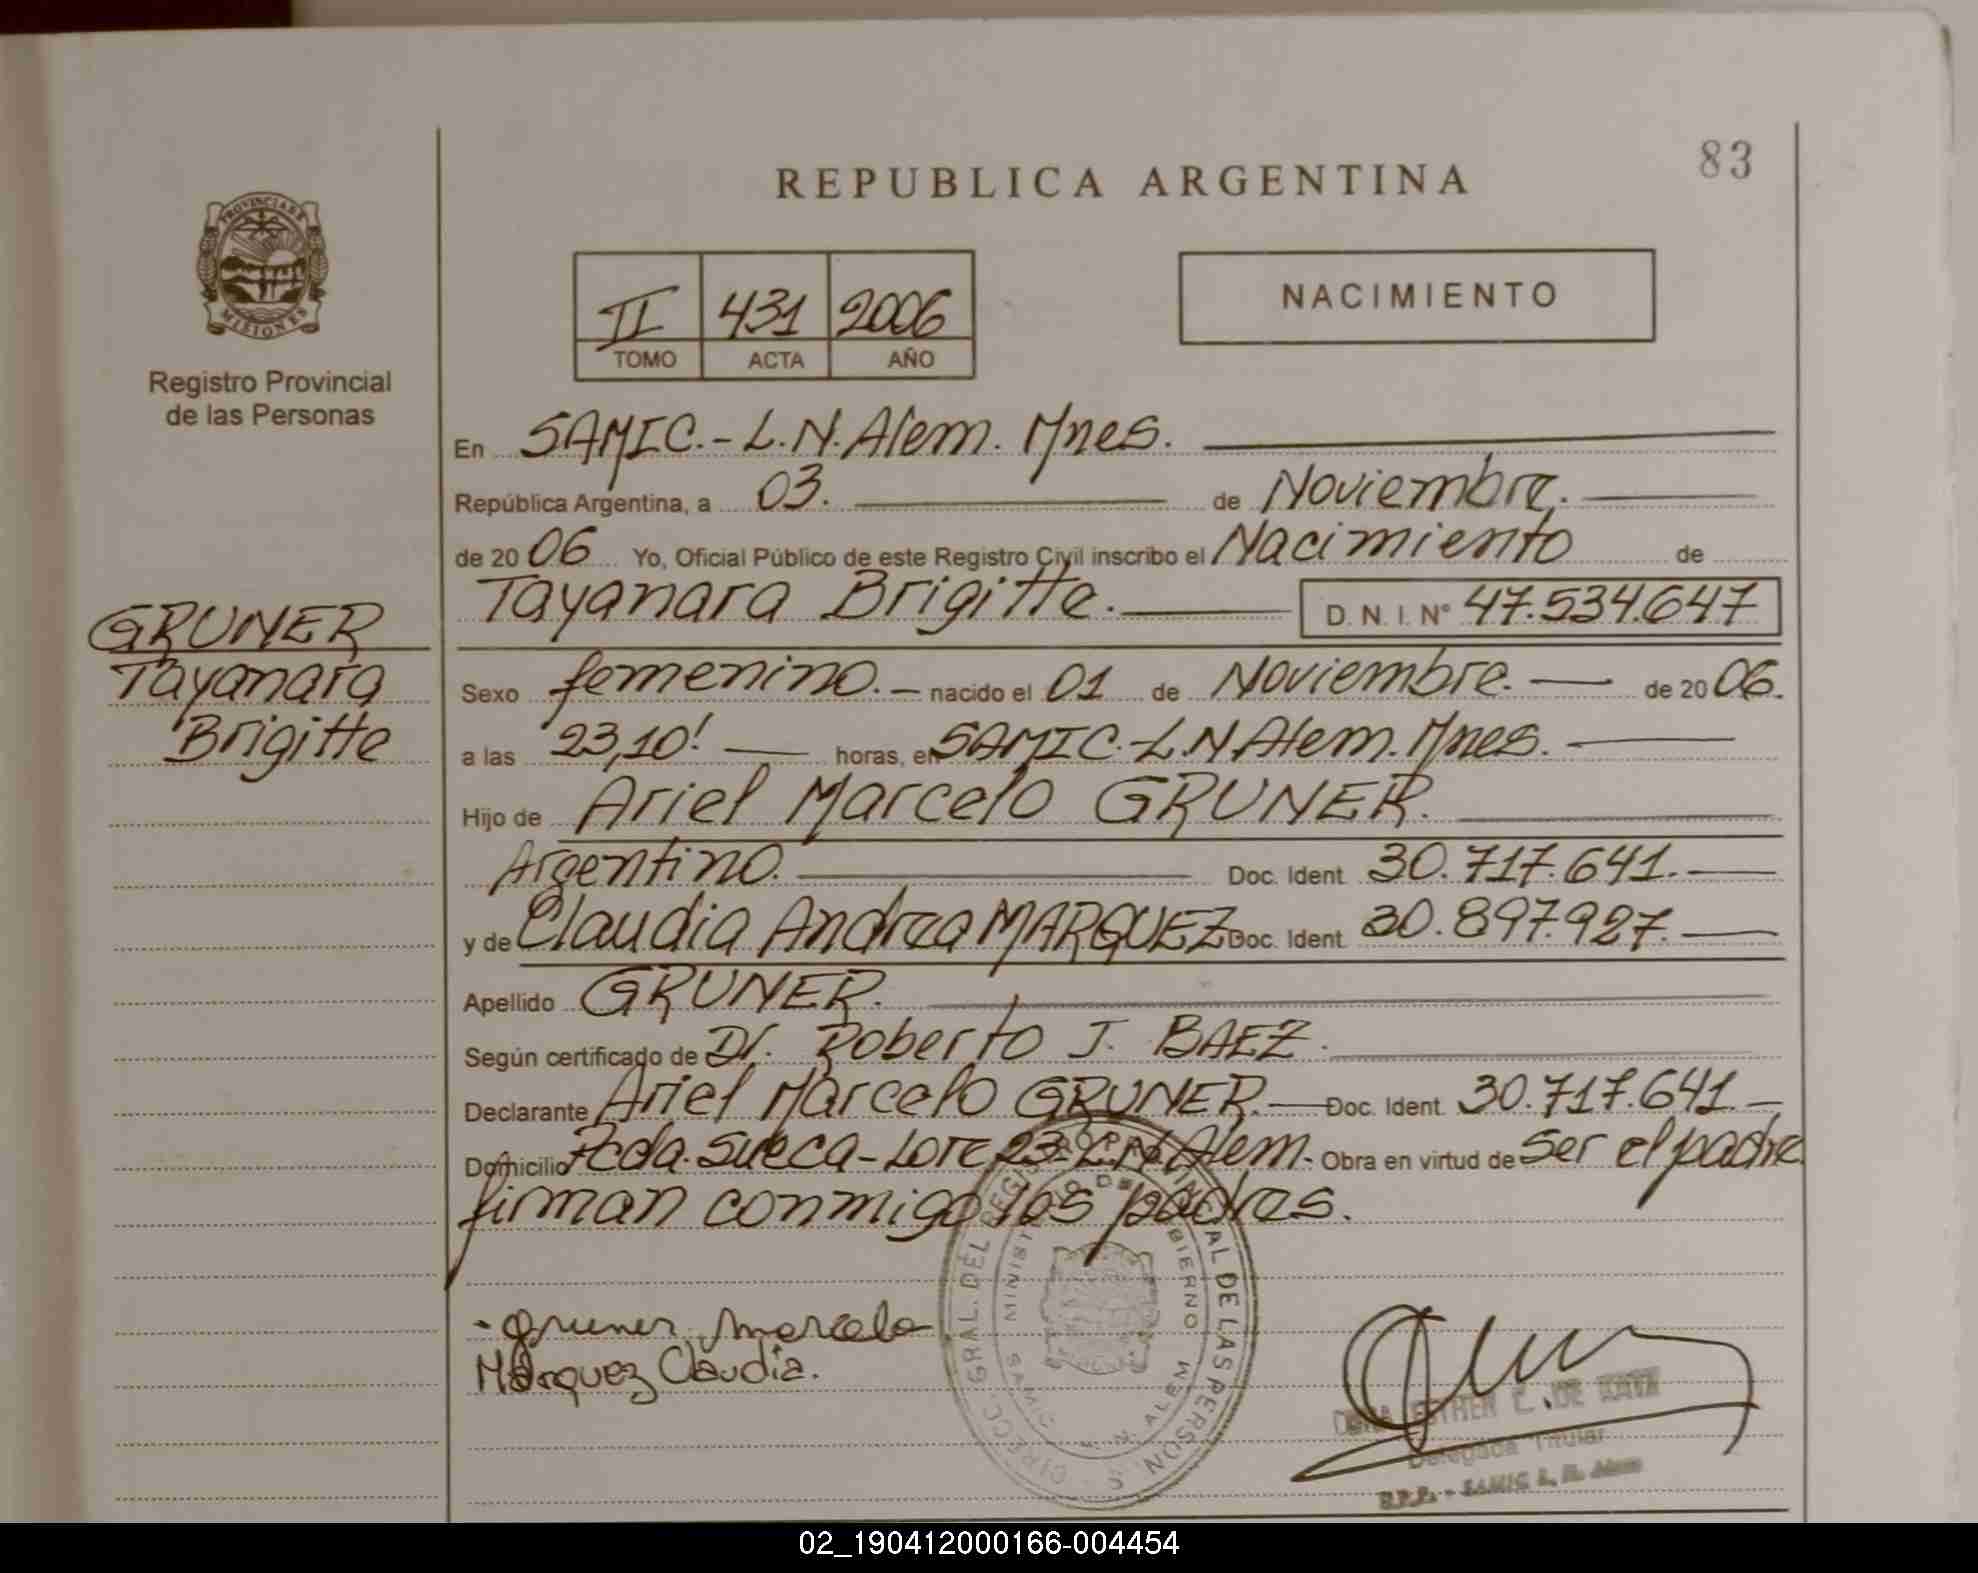 83
REPUBLICA ARGENTINA
PROVINCIA DE
MISIONES
Registro Provincial
de las Personas
II 431 2006
TOMO ACTA AÑO
NACIMIENTO
En SAMIC.- L.N. Alem. Mnes.
República Argentina, a 03. de Noviembre.
de 2006 Yo, Oficial Público de este Registro Civil inscribo el Nacimiento de
Tayanara Brigitte. D. N. I. Nº 47.534.647
GRUNER
Tayanara
Brigitte
Sexo femenino.- nacido el 01 de Noviembre. de 2006.
a las 23,10' horas, en SAMIC.-L.N. Alem. Mnes.
Hijo de Ariel Marcelo GRUNER.
Argentino. Doc. Ident. 30.717.641.
y de Claudia Andrea MARQUEZ Doc. Ident. 30.897.927.
Apellido GRUNER.
Según certificado de Dr. Roberto J. BAEZ.
Declarante Ariel Marcelo GRUNER. Doc. Ident. 30.717.641.
Domicilio Pcda. Sueca - Lote 23- L.N. Alem. Obra en virtud de ser el padre
firman conmigo los padres.
- Gruner Marcelo
Márquez Claudia.
DIRECC. GRAL. DEL REGISTRO PROVINCIAL DE LAS PERSON S
MINISTERIO DE GOBIERNO
SAMIC L. N. ALEM
ESTHER C. DE
Delegada Titular
R.P.P. - SAMIC L. N. Alem
02_190412000166-004454